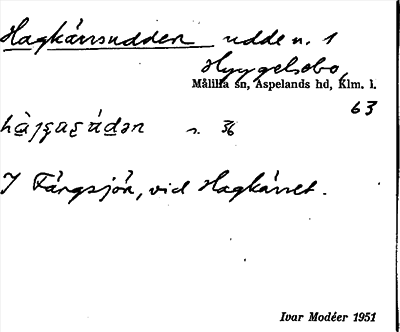 Hagkärrsudden udde n. 1
Hyggelsebo,
Målilla sn, Aspelands hd, Klm. l.
63
s. 36
I Fängsjön, vid Hagkärret.
Ivar Modéer 1951